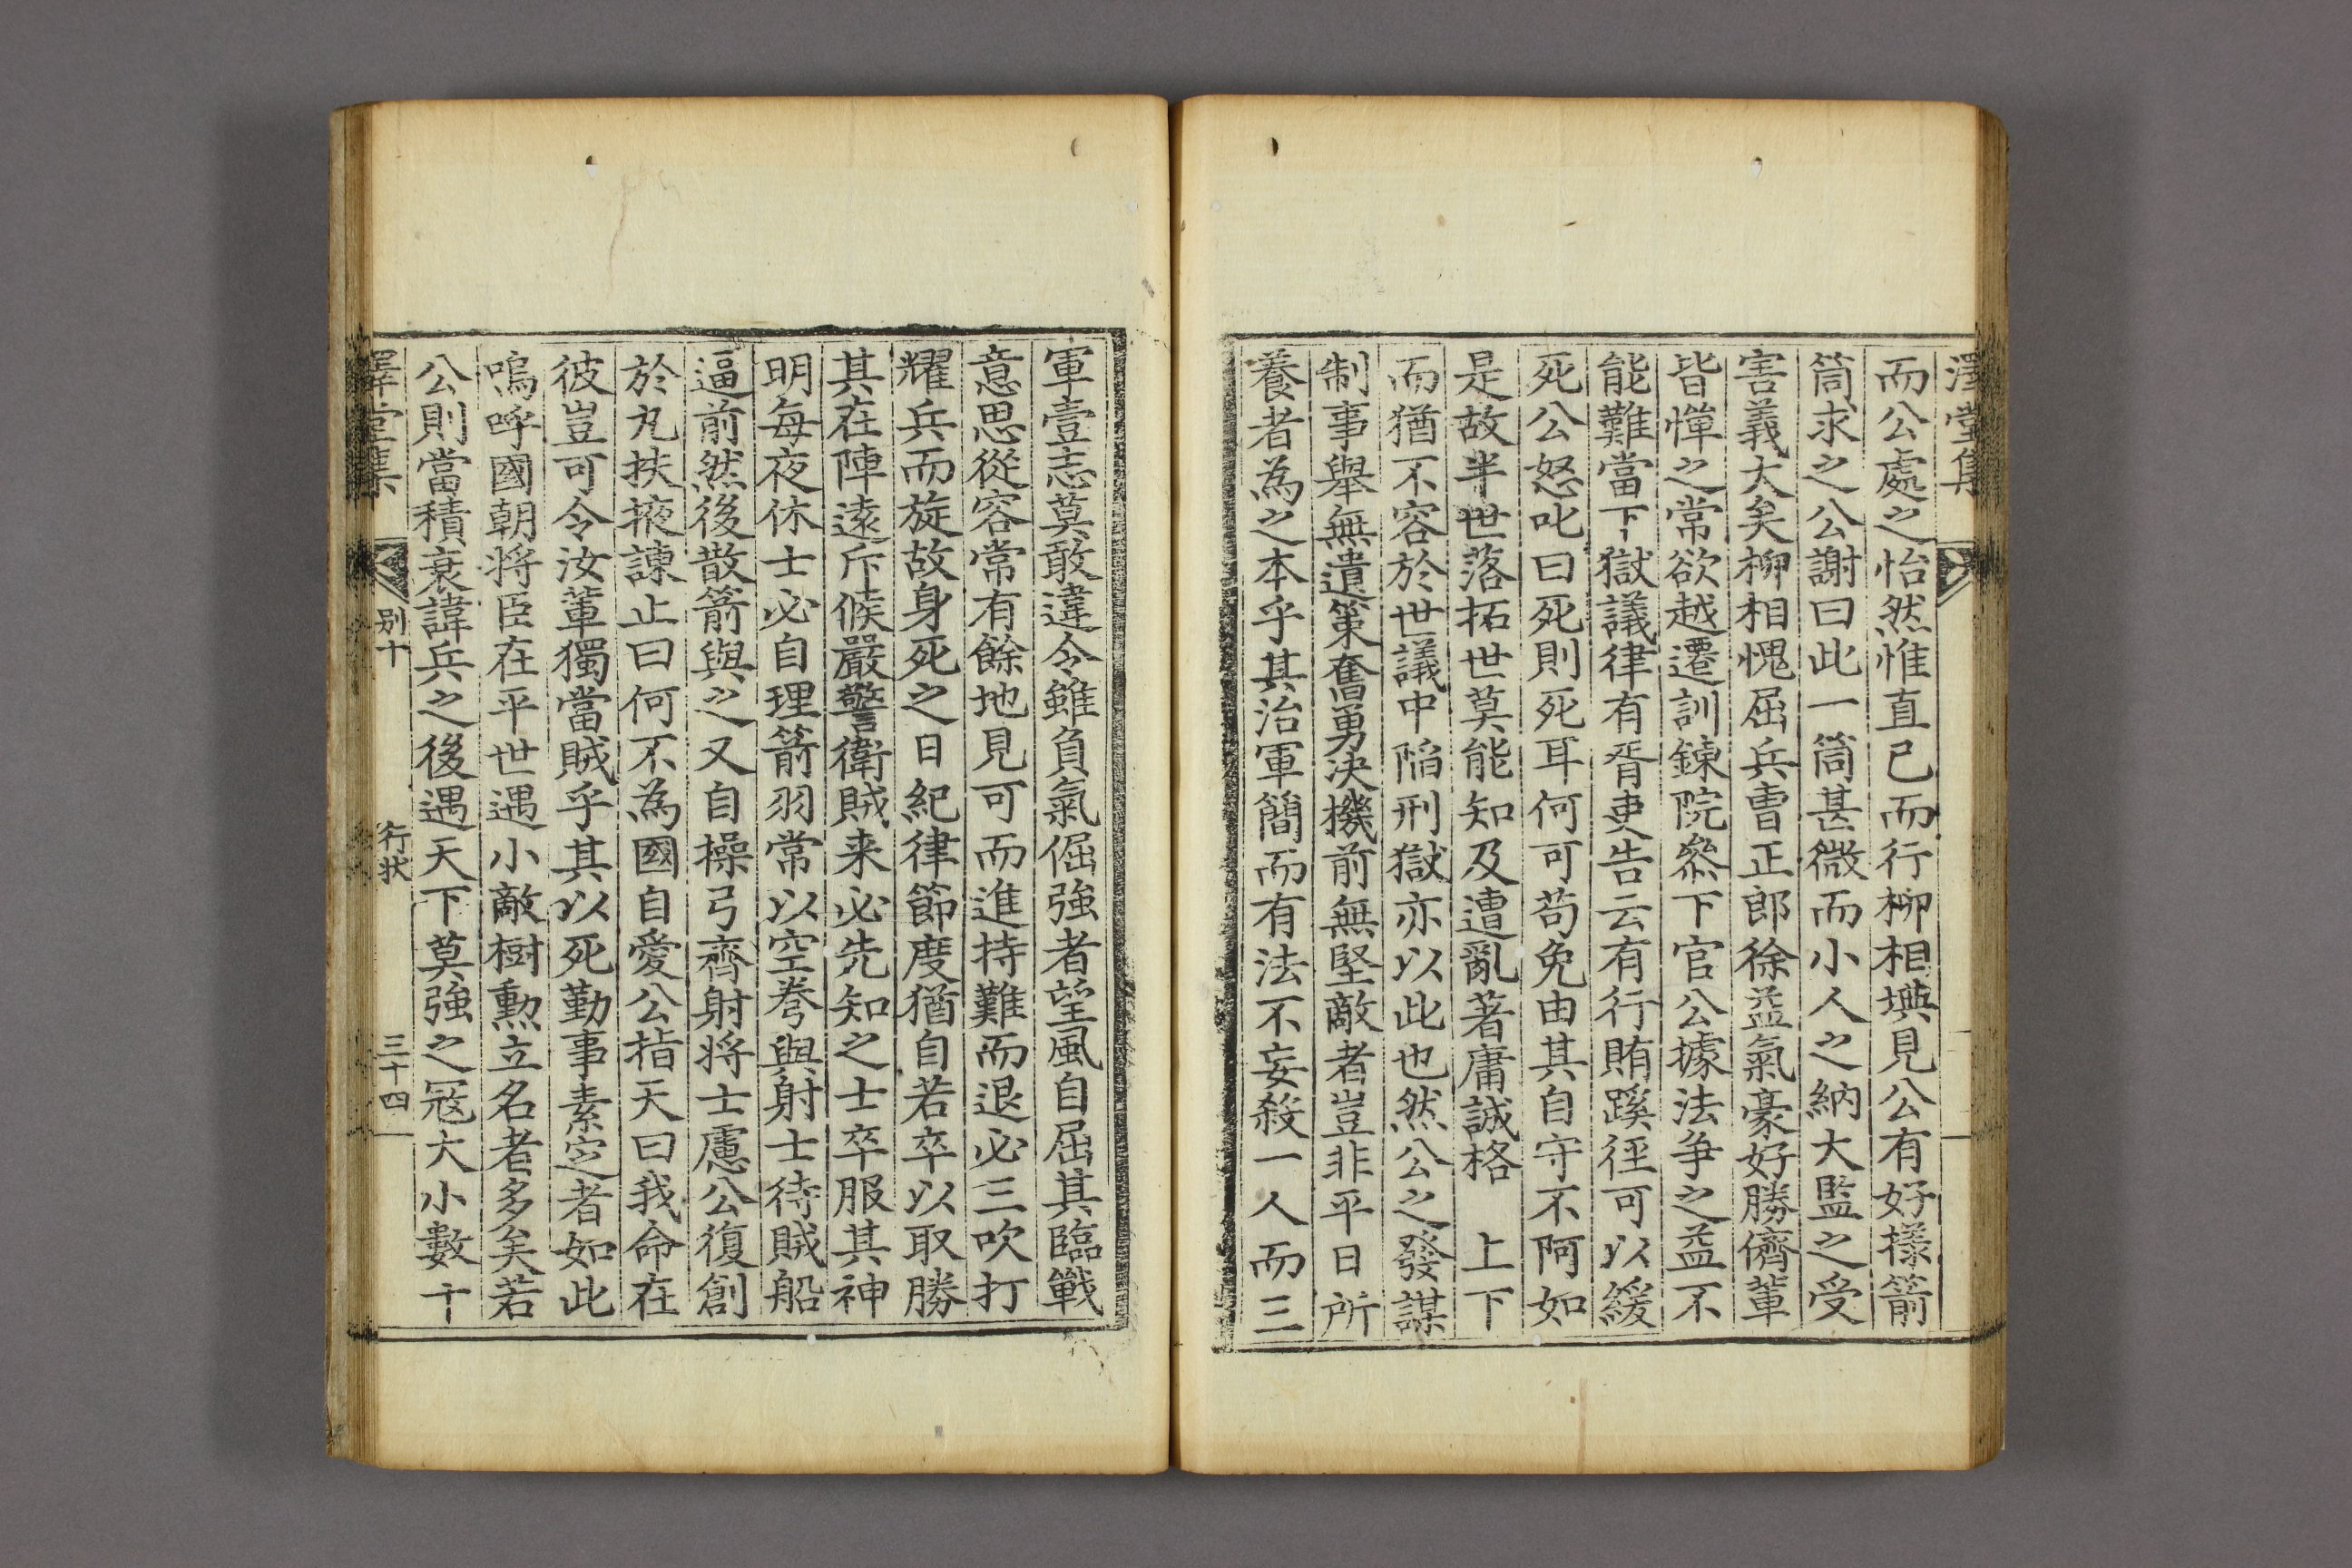 澤堂集
而公處之怡然惟直己而行柳相㙉見公有好樣箭
筒求之公謝曰此一筒甚微而小人之納大監之受
害義大矣柳相愧屈兵曺正郎徐益氣豪好勝儕軰
皆憚之常欲越遷訓鍊院叅下官公據法爭之益不
能難當下獄議律有胥吏告云有行賄蹊徑可以緩
死公怒叱曰死則死耳何可苟免由其自守不阿如
是故半世落拓世莫能知及遭亂著庸誠格　上下
而猶不容於世議中陷刑獄亦以此也然公之發謀
制事舉無遺策奮勇决機前無堅敵者豈非平日所
養者為之本乎其治軍簡而有法不妄殺一人而三
軍壹志莫敢違令雖負氣倔強者望風自屈其臨戰
意思從容常有餘地見可而進持難而退必三吹打
耀兵而旋故身死之日紀律節度猶自若卒以取勝
其在陣遠斥候嚴警衛賊来必先知之士卒服其神
明每夜休士必自理箭羽常以空弮與射士待賊船
逼前然後散箭與之又自操弓齊射將士慮公復創
於丸扶掖諫止曰何不為國自愛公指天曰我命在
彼豈可令汝軰獨當賊乎其以死勤事素定者如此
嗚呼國朝將臣在平世遇小敵樹勳立名者多矣若
公則當積衰諱兵之後遇天下莫強之寇大小數十
澤堂集　別十　行狀　三十四